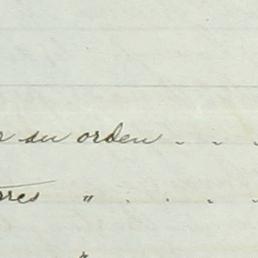 su orden - - -
rres " - . - -
"